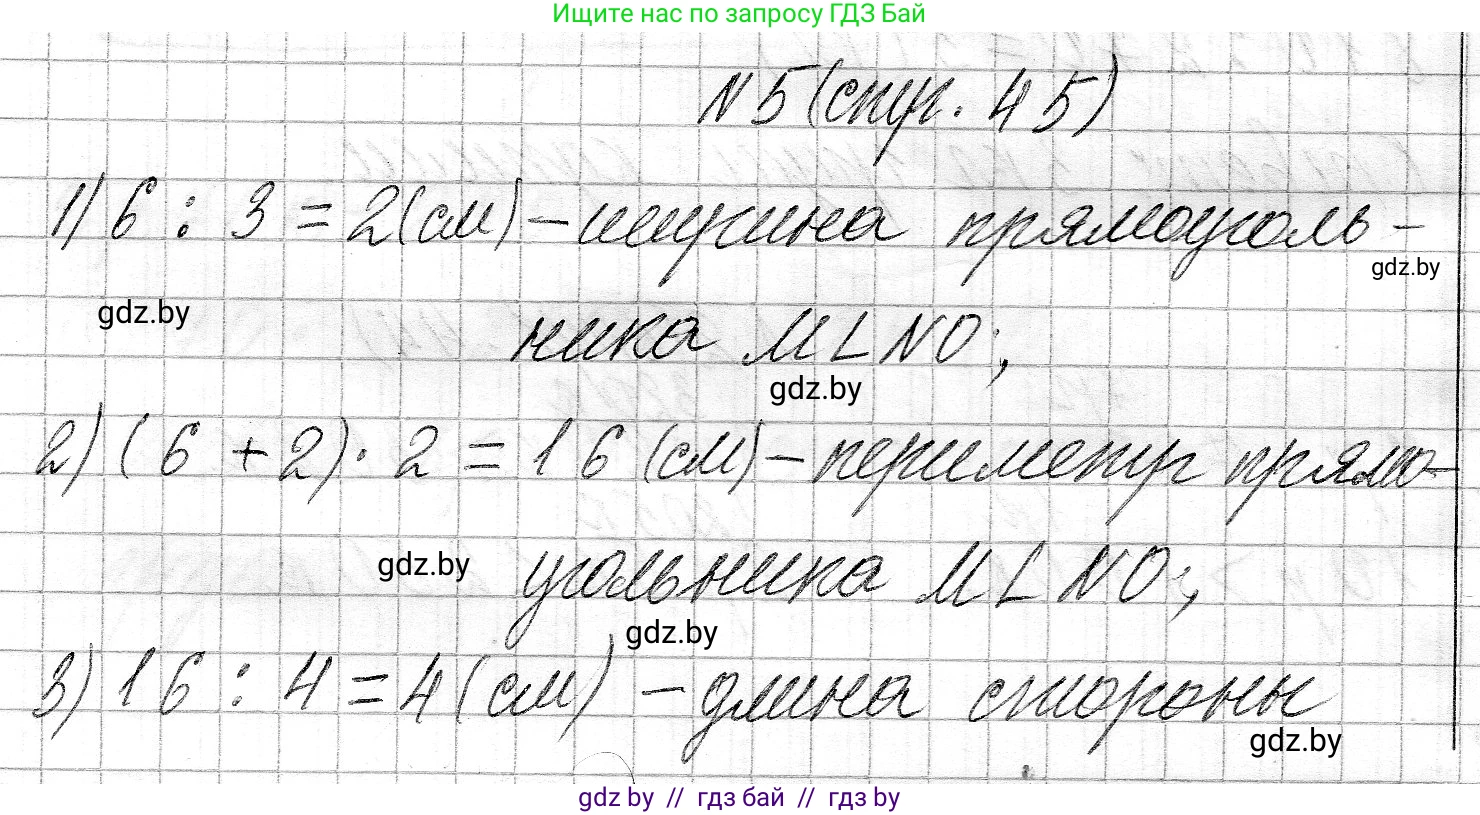 Ищите нас по запросу ГДЗ Бай
N 5 (стр. 45)
1) 6 : 3 = 2 (см) – ширина прямоуголь-
gdz.by
gdz.by
ника MLNO;
gdz.by
2) (6 + 2) · 2 = 16 (см) – периметр прямо-
gdz.by
угольника MLNO;
gdz.by
3) 16 : 4 = 4 (см) – длина стороны
gdz.by
gdz by // гдз бай // гдз by